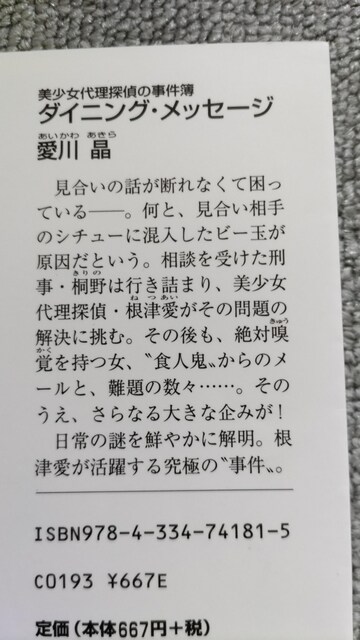 美少女代理探偵の事件簿
ダイニング・メッセージ
あいかわ あきら
愛川 晶
見合いの話が断れなくて困っ
ている――。何と、見合い相手
のシチューに混入したビー玉が
原因だという。相談を受けた刑
きりの
事・桐野は行き詰まり、美少女
ねつあい
代理探偵・根津愛がその問題の
きゅう
解決に挑む。その後も、絶対嗅
かく
覚を持つ女、〝食人鬼〟からのメ
ールと、難題の数々……。その
うえ、さらなる大きな企みが！
日常の謎を鮮やかに解明。根
津愛が活躍する究極の〝事件〟。
ISBN978-4-334-74181-5
C0193 ¥667E
定価(本体667円+税)